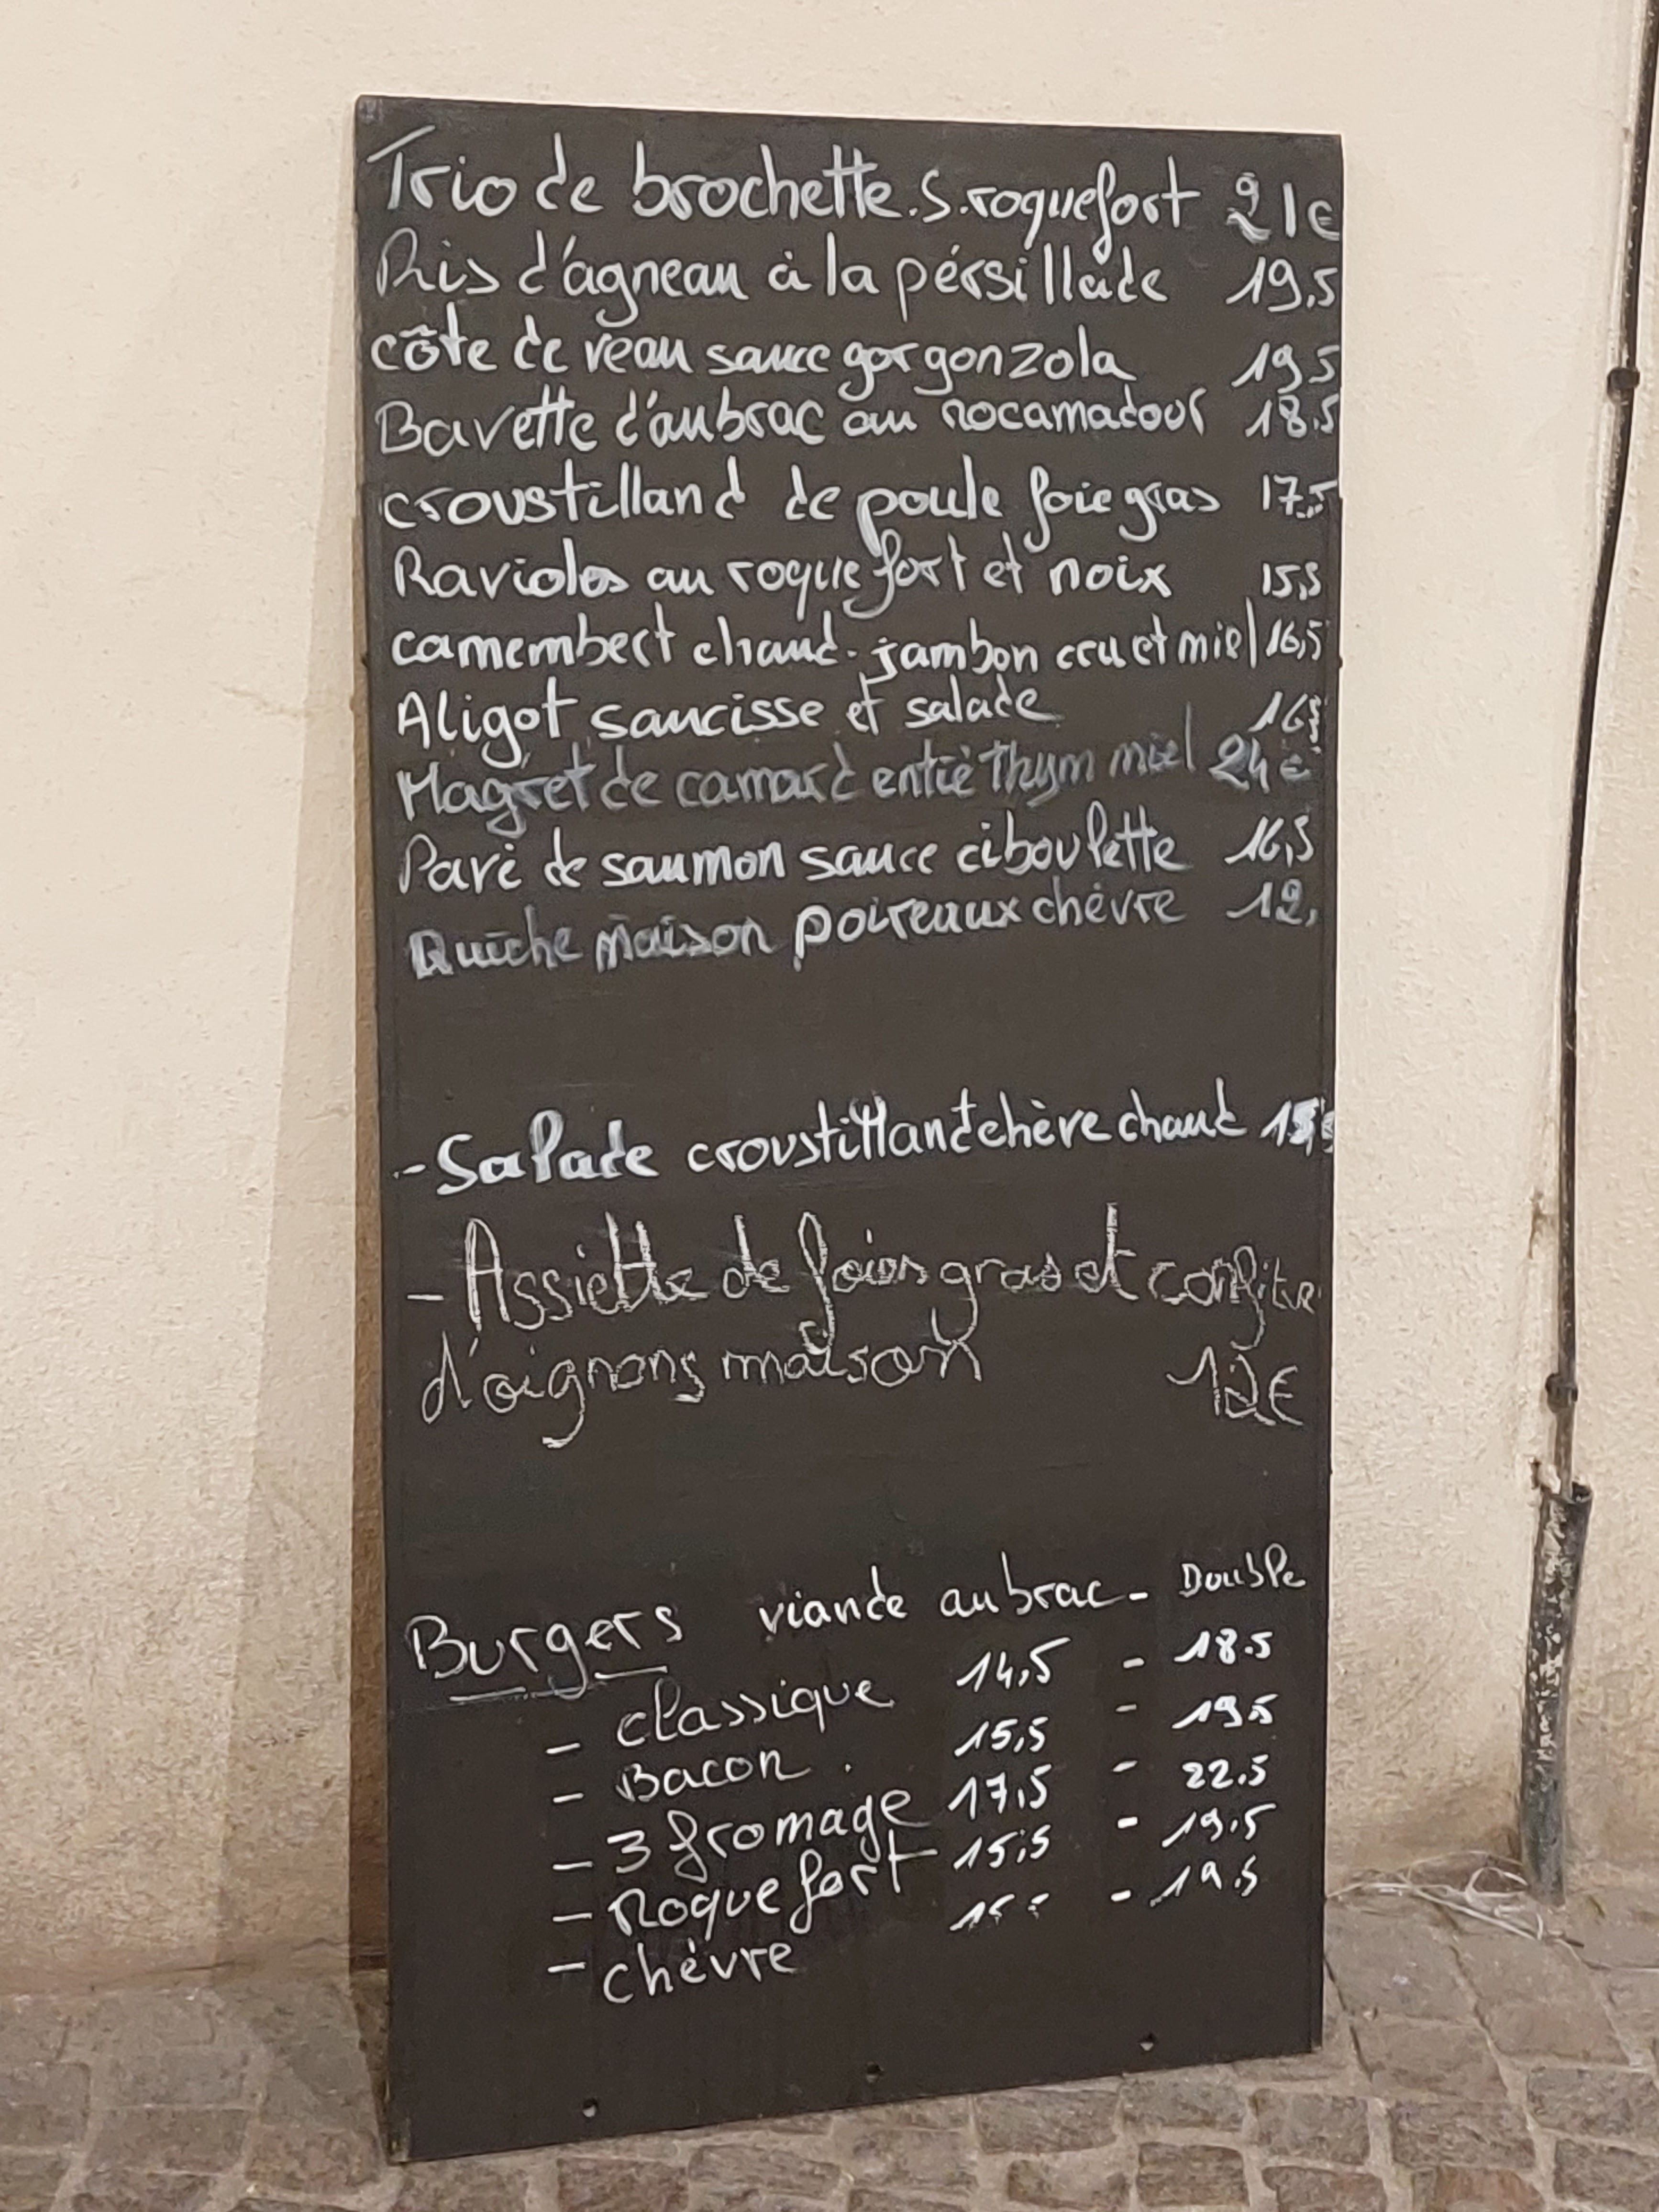 Trio de brochette.S.roquefort 21€
Ris d'agneau à la pérsillade 19,5
côte de veau sauce gorgonzola 19,5
Bavette d'aubrac au rocamadour 18.5
croustilland de poule foie gras 17.5
Ravioles au roquefort et noix 15,5
camembert chaud. jambon cru et miel 16,5
Aligot saucisse et salade
Magret de camard entié Thym miel 24€
Pavé de saumon sauce ciboulette 16,5
Quiche maison poireaux chévre 12,
- Salade croustillant chèvre chaud
- Assiette de foies gras et confitur
d'oignons maison 12€
Burgers viande aubrac - Double
- classique 14,5 - 18.5
- Bacon . 15,5 - 19.5
- 3 fromage 17,5 - 22.5
- Roquefort 15,5 - 19.5
- chévre - 19.5